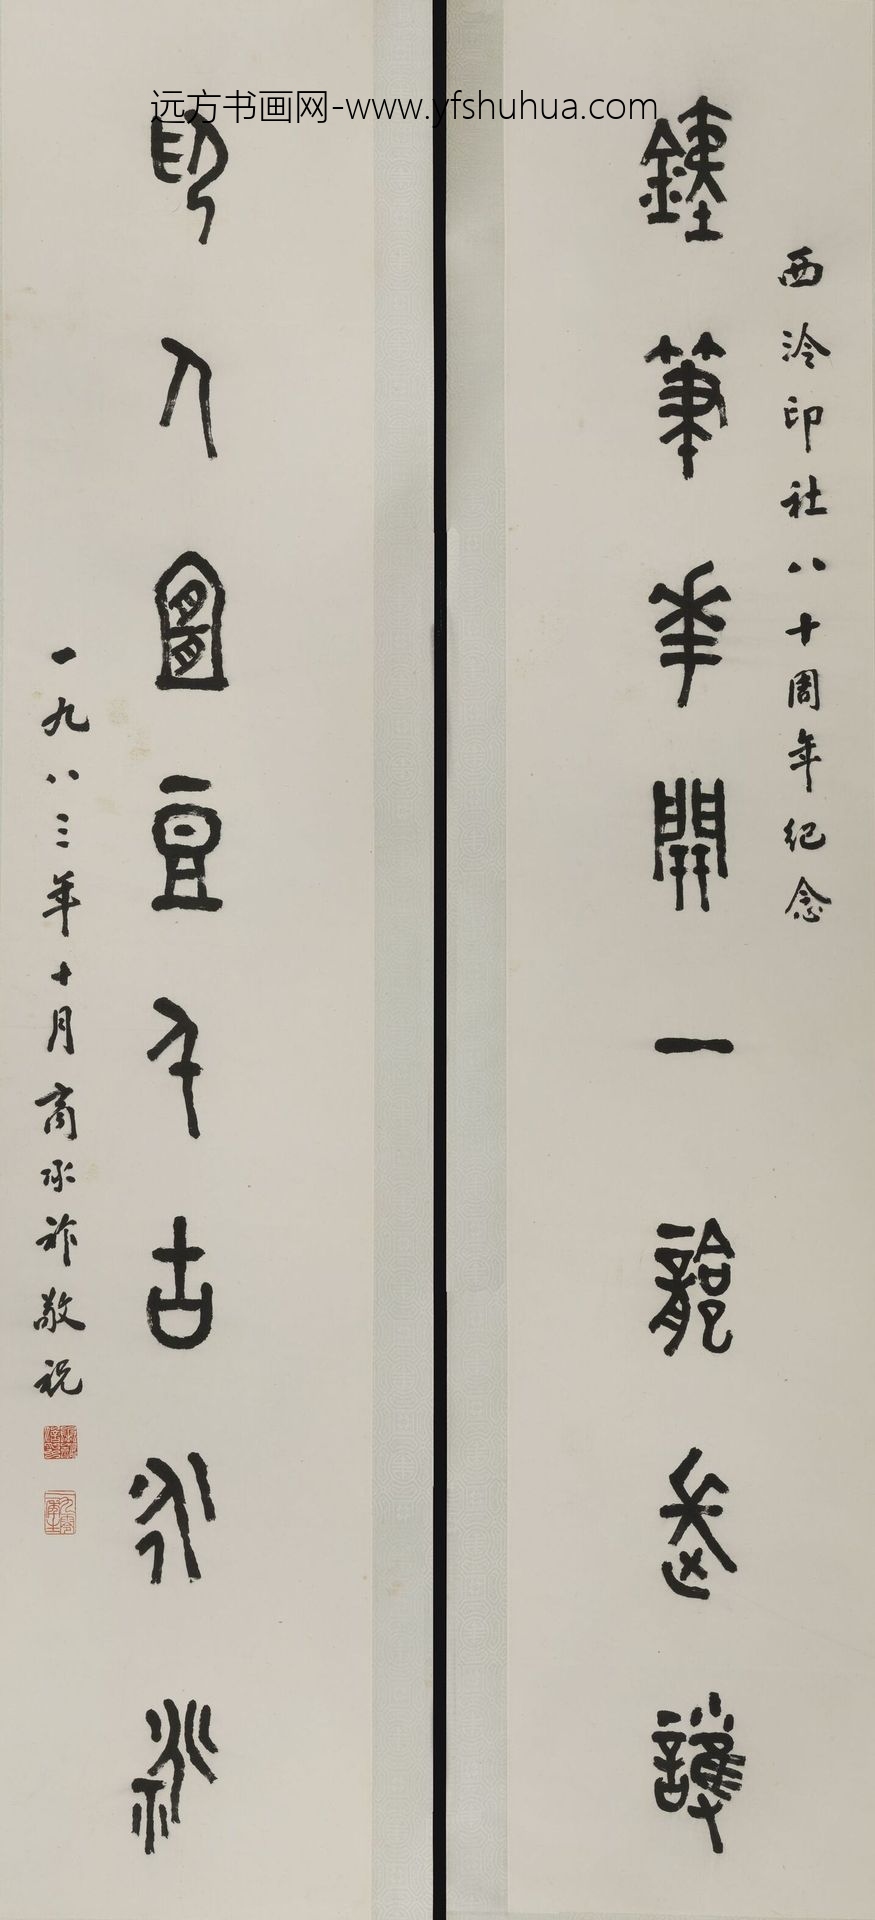 远方书画网-www.yfshuhua.com
西泠印社八十周年纪念
鐵筆華開一龕護
印人千古
一九八三年十月商承祚敬祝